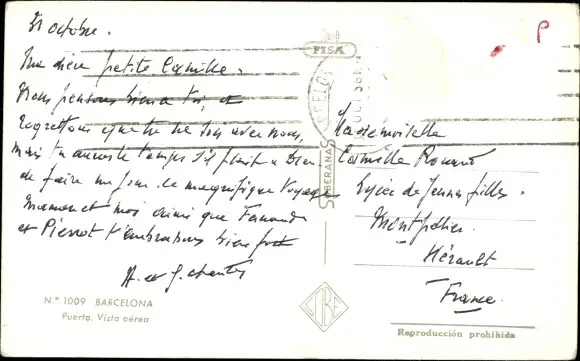 31 octobre.
Ma chère petite Camille.
Nous pensons bien à toi, et
regrettons que tu ne sois avec nous,
mais tu auras le temps s'il plaît à Dieu
de faire un jour ce magnifique voyage
Maman et moi ainsi que Fernande
et Pierrot t'embrassons bien fort
A. et J.
N.º 1009 BARCELONA
Puerto. Vista aérea
FISA
SOBERANAS
P
Mademoiselle
Camille
Lycée de Jeunes filles.
Montpellier
Hérault
France
Reproducción prohibida